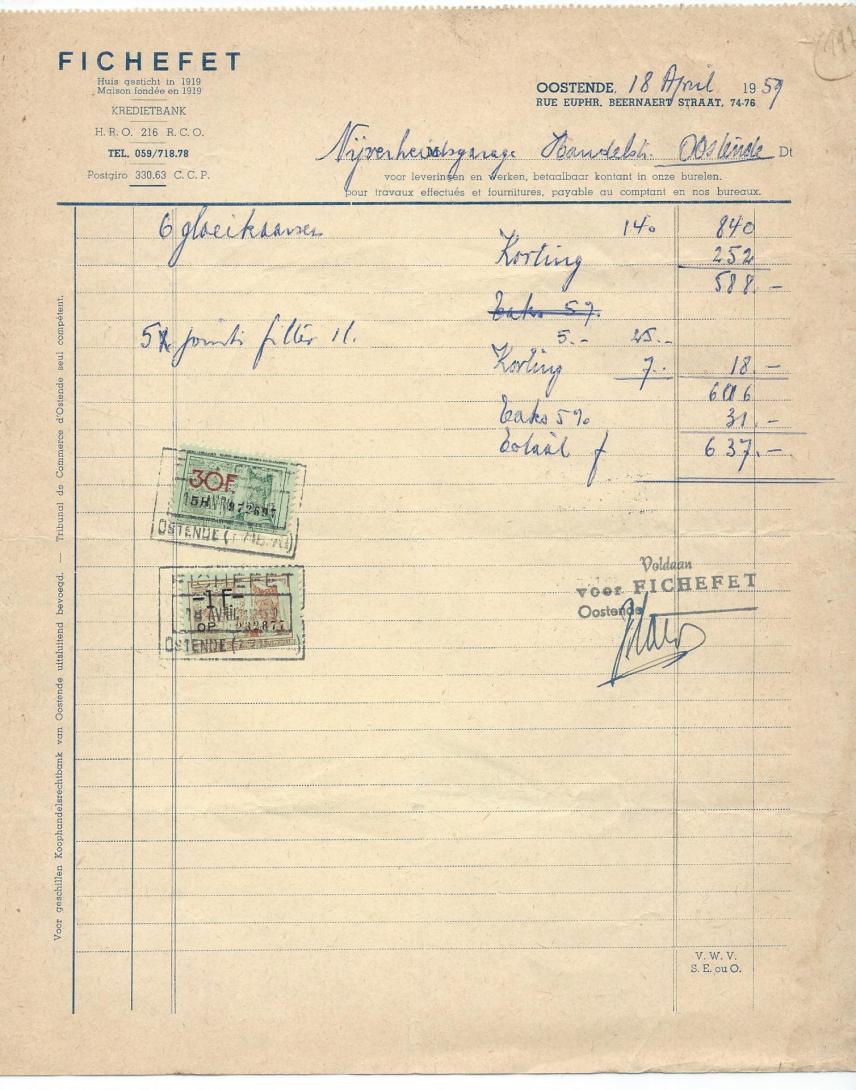 FICHEFET
Huis gesticht in 1919
Maison fondée en 1919
KREDIETBANK
H. R. O. 216 R. C. O.
TEL. 059/718.78
Postgiro 330.63 C. C. P.
OOSTENDE, 18 April 1959
RUE EUPHR. BEERNAERT STRAAT, 74-76
M Nijverheidsgarage Handelstr. Oostende Dt
voor leveringen en werken, betaalbaar kontant in onze burelen.
pour travaux effectués et fournitures, payable au comptant en nos bureaux.
6 gloeikaarsen 140 840
Korting 252
588.-
Taks 5%
5x joints filter 5.- 25.-
Korting 7.- 18.-
606
Taks 5% 31.-
Totaal f 637.-
30F.
972697
OSTENDE
FICHEFET
-1F-
18 AVRIL
OP 232877
OSTENDE
Voldaan
voor FICHEFET
Oostende
Voor geschillen Koophandelsrechtbank van Oostende uitsluitend bevoegd. — Tribunal de Commerce d'Ostende seul compétent.
V. W. V.
S. E. ou O.